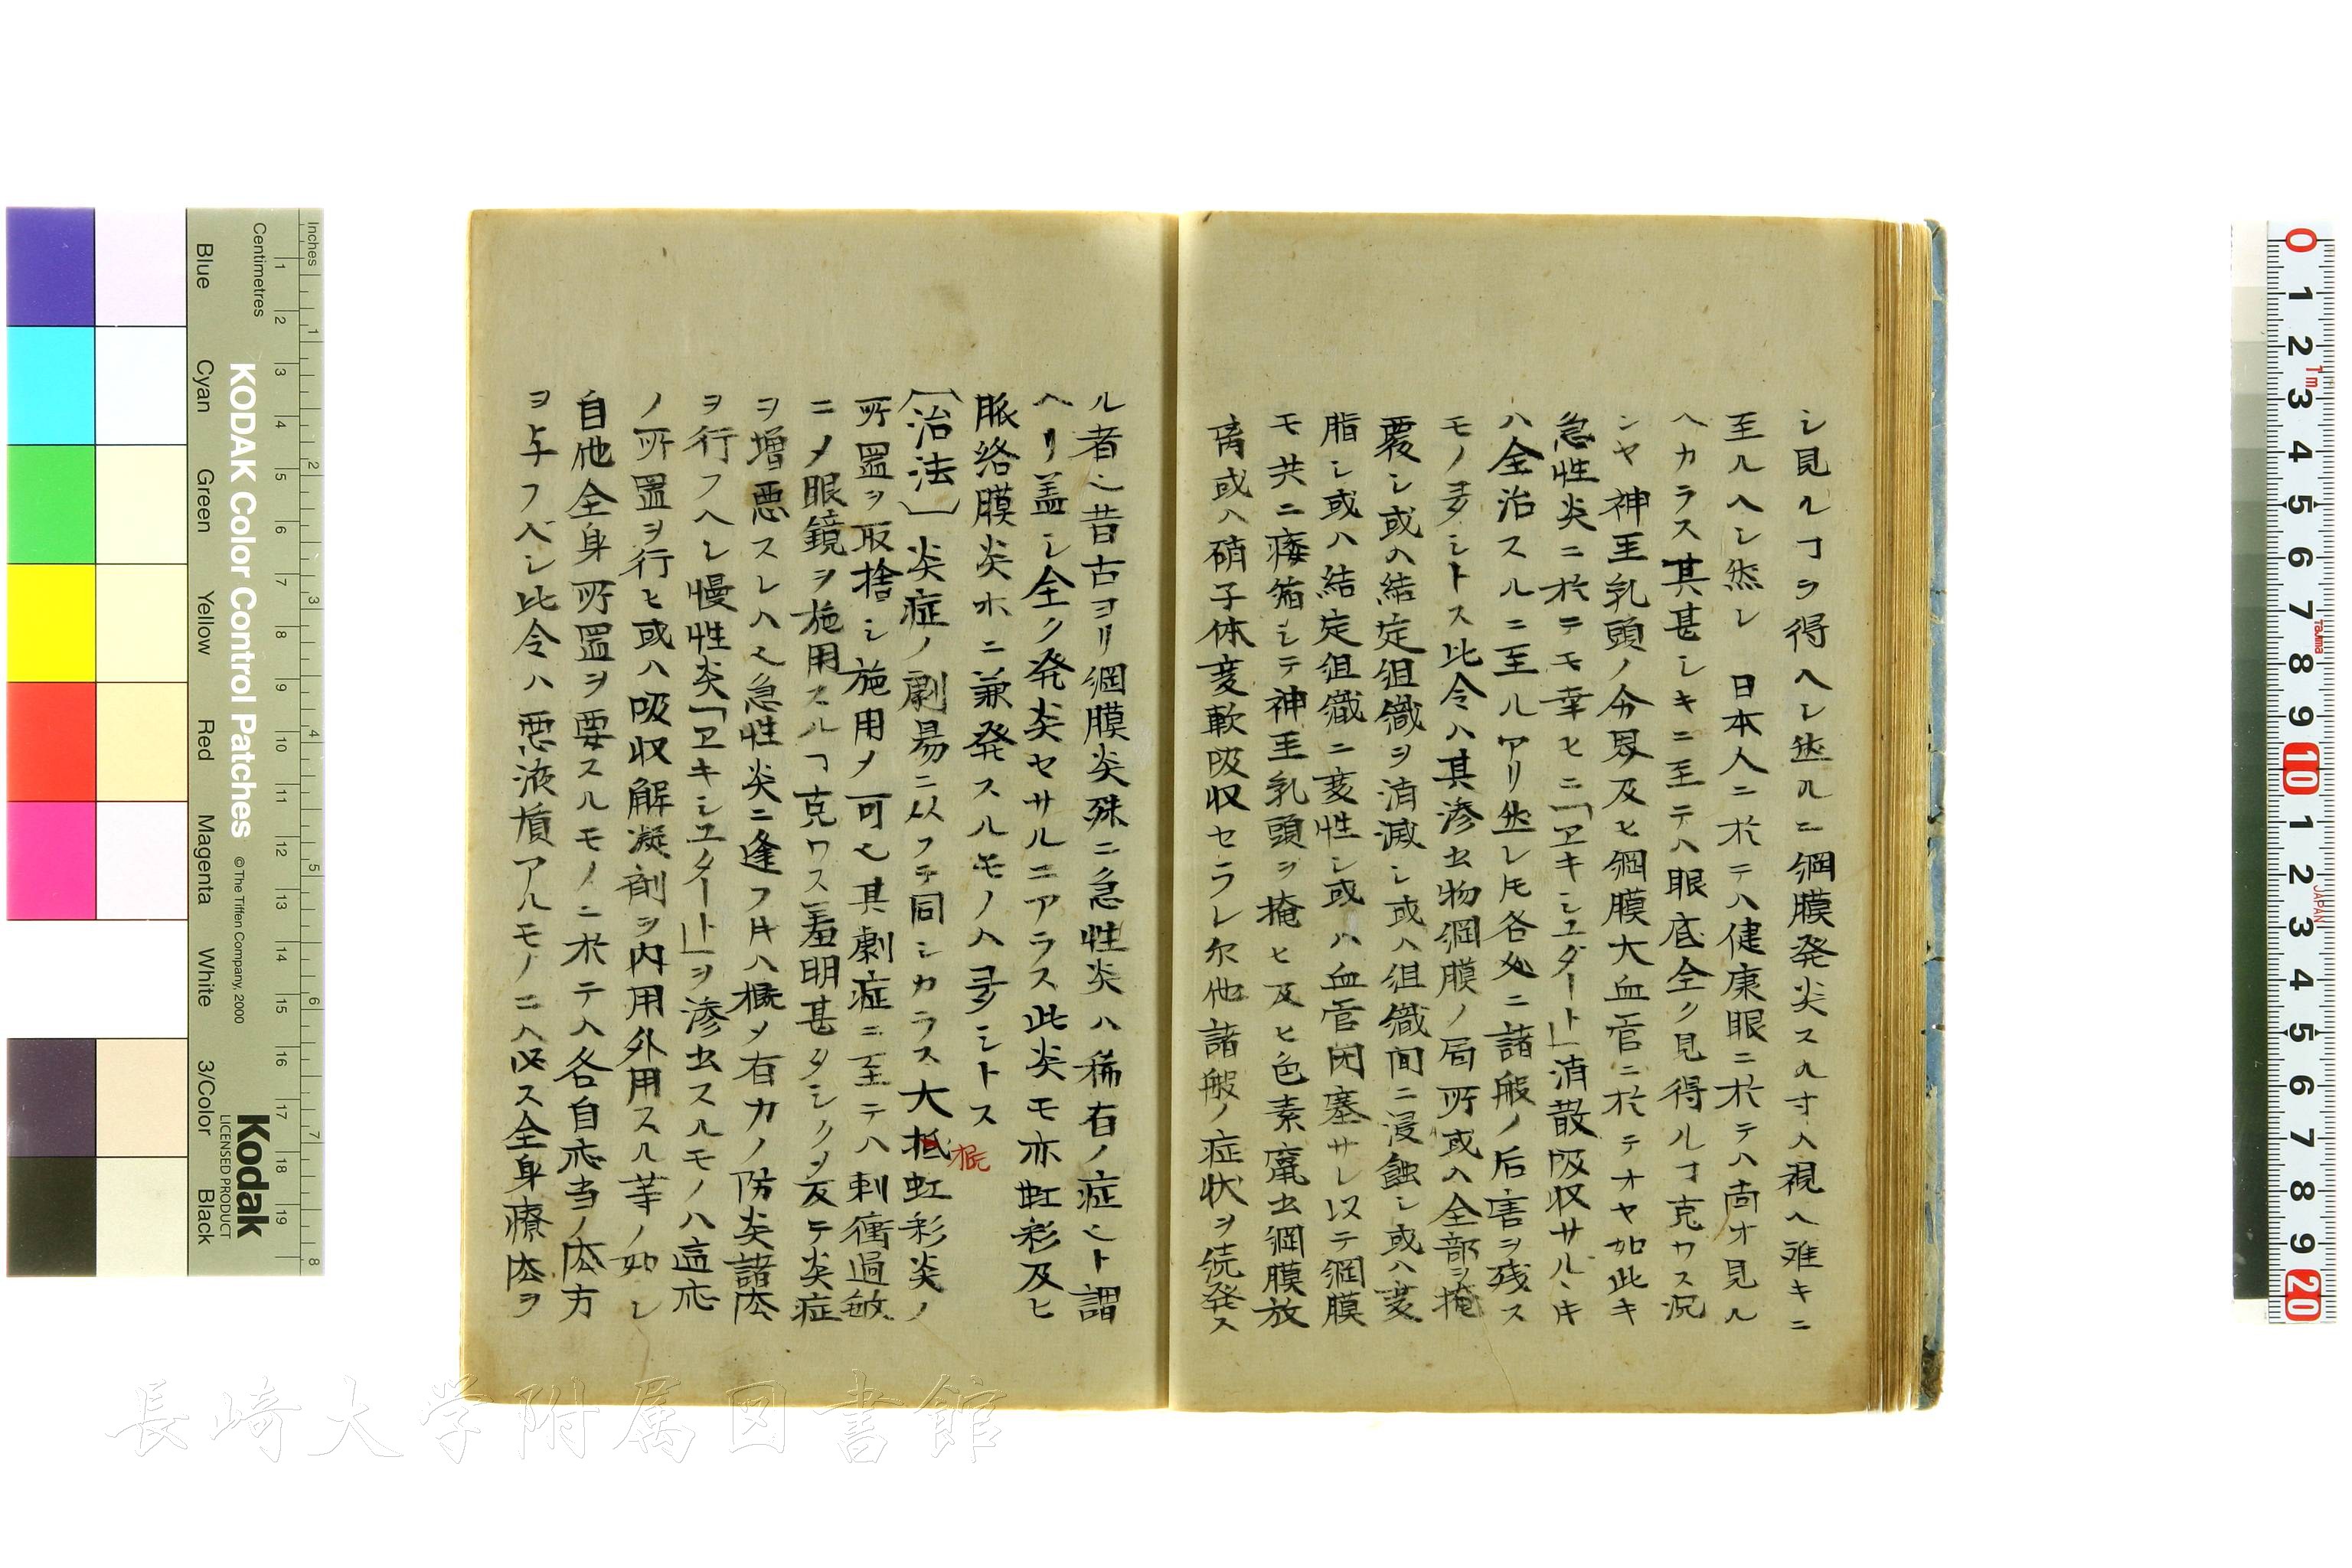 シ見ルヿヲ得ヘシ然ルニ綱膜発炎スル寸ハ視ヘ難キニ
至ルヘシ然レ 日本人ニ於テハ健康眼ニ於テハ尚オ見ル
ヘカラス其甚シキニ至テハ眼底全ク見得ルヿ克ワス況
ンヤ神圣乳頭ノ分界及ヒ綱膜大血管ニ於テオヤ如此キ
急性炎ニ於テモ幸ヒニ「ヱキシユダート」消散吸収サルヽ𪜈
ハ全治スルニ至ルアリ然レ𪜈各処ニ諸般ノ后害ヲ残ス
モノ多シトス比令ハ其滲出物綱膜ノ局所或ハ全部ヲ掩
覆シ或ハ結定組織ヲ消滅シ或ハ組織間ニ浸蝕シ或ハ変
脂シ或ハ結定組織ニ変性シ或ハ血管閉塞サレ以テ綱膜
モ共ニ痿縮シテ神圣乳頭ヲ掩ヒ及ヒ色素竄出綱膜放
离或ハ硝子体変軟吸収セラレ尓他諸般ノ症状ヲ続発ス
ル者也昔古ヨリ綱膜炎殊ニ急性炎ハ稀有ノ症也ト謂
ヘリ蓋シ全ク発炎セサルニアラス此炎モ亦虹彩及ヒ
脈絡膜炎ホニ兼発スルモノハ多シトス
〔治法〕炎症ノ劇易ニ以フテ同シカラス大抵虹彩炎ノ
概
所置ヲ取捨シ施用メ可也其劇症ニ至テハ刺衝過敏
ニメ眼鏡ヲ施用スルヿ克ワス羞明甚タシク又テ炎症
ヲ増悪スレハ也急性炎ニ逢フ𪜈ハ概メ有力ノ防炎諸㳒
ヲ行フヘシ慢性炎「ヱキシユダート」ヲ滲出スルモノハ適応
ノ所置ヲ行ヒ或ハ吸収解凝剤ヲ内用外用スル等ノ如シ
自他全身所置ヲ要スルモノニ於テハ各自応当ノ㳒方
ヲ与フベシ比令ハ悪液質アルモノニハ必ス全身療㳒ヲ
KODAK Color Control Patches
© The Tiffen Company, 2000
Kodak
LICENSED PRODUCT
Inches
Centimetres
Blue
Cyan
Green
Yellow
Red
Magenta
White
3/Color
Black
長崎大学附属図書館